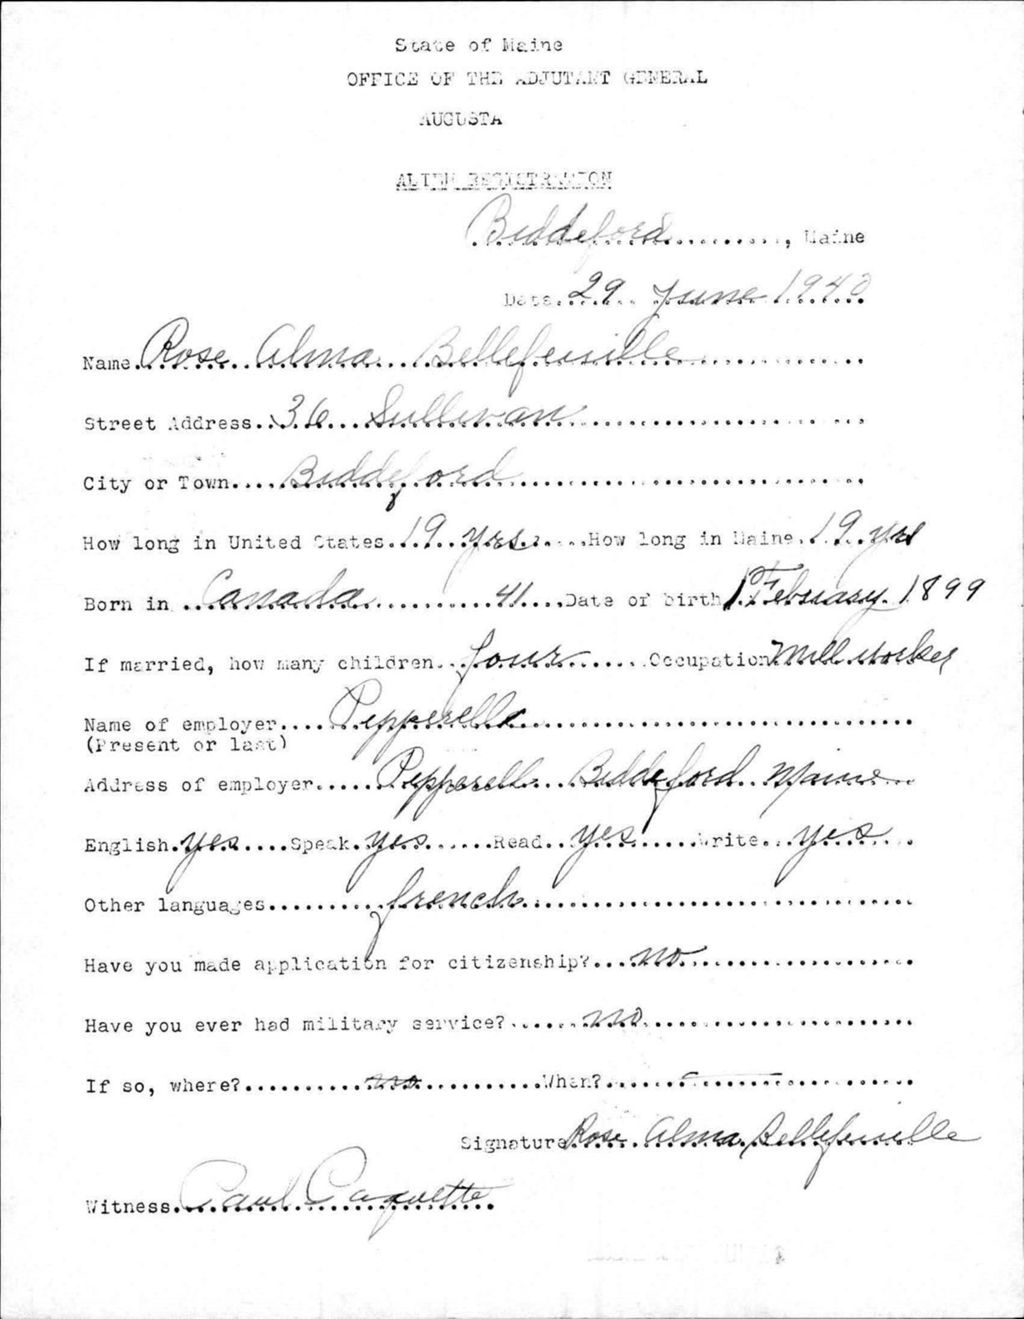 State of Maine
OFFICE OF THE ADJUTANT GENERAL
AUGUSTA
ALIEN REGISTRATION
Biddeford............, Maine
Date...29 June 1940
Name.Rose Alma Bellefeuille..............
Street Address..36 Sullivan....................
City or Town.....Biddeford.........................
How long in United States.19 yrs......How long in Maine.19 yrs
Born in ..Canada............41....Date of birth 1 February 1899
If married, how many children...four......Occupation Mill worker
Name of employer....Pepperell.............................
(Present or last)
Address of employer......Pepperell Biddeford Maine...
English.yes....Speak.yes......Read..yes......Write..yes....
Other languages..........french..............................
Have you made application for citizenship?...no..................
Have you ever had military service?.......no.....................
If so, where?..........no...........When?........................
Signature Rose Alma Bellefeuille
Witness.Paul Paquette